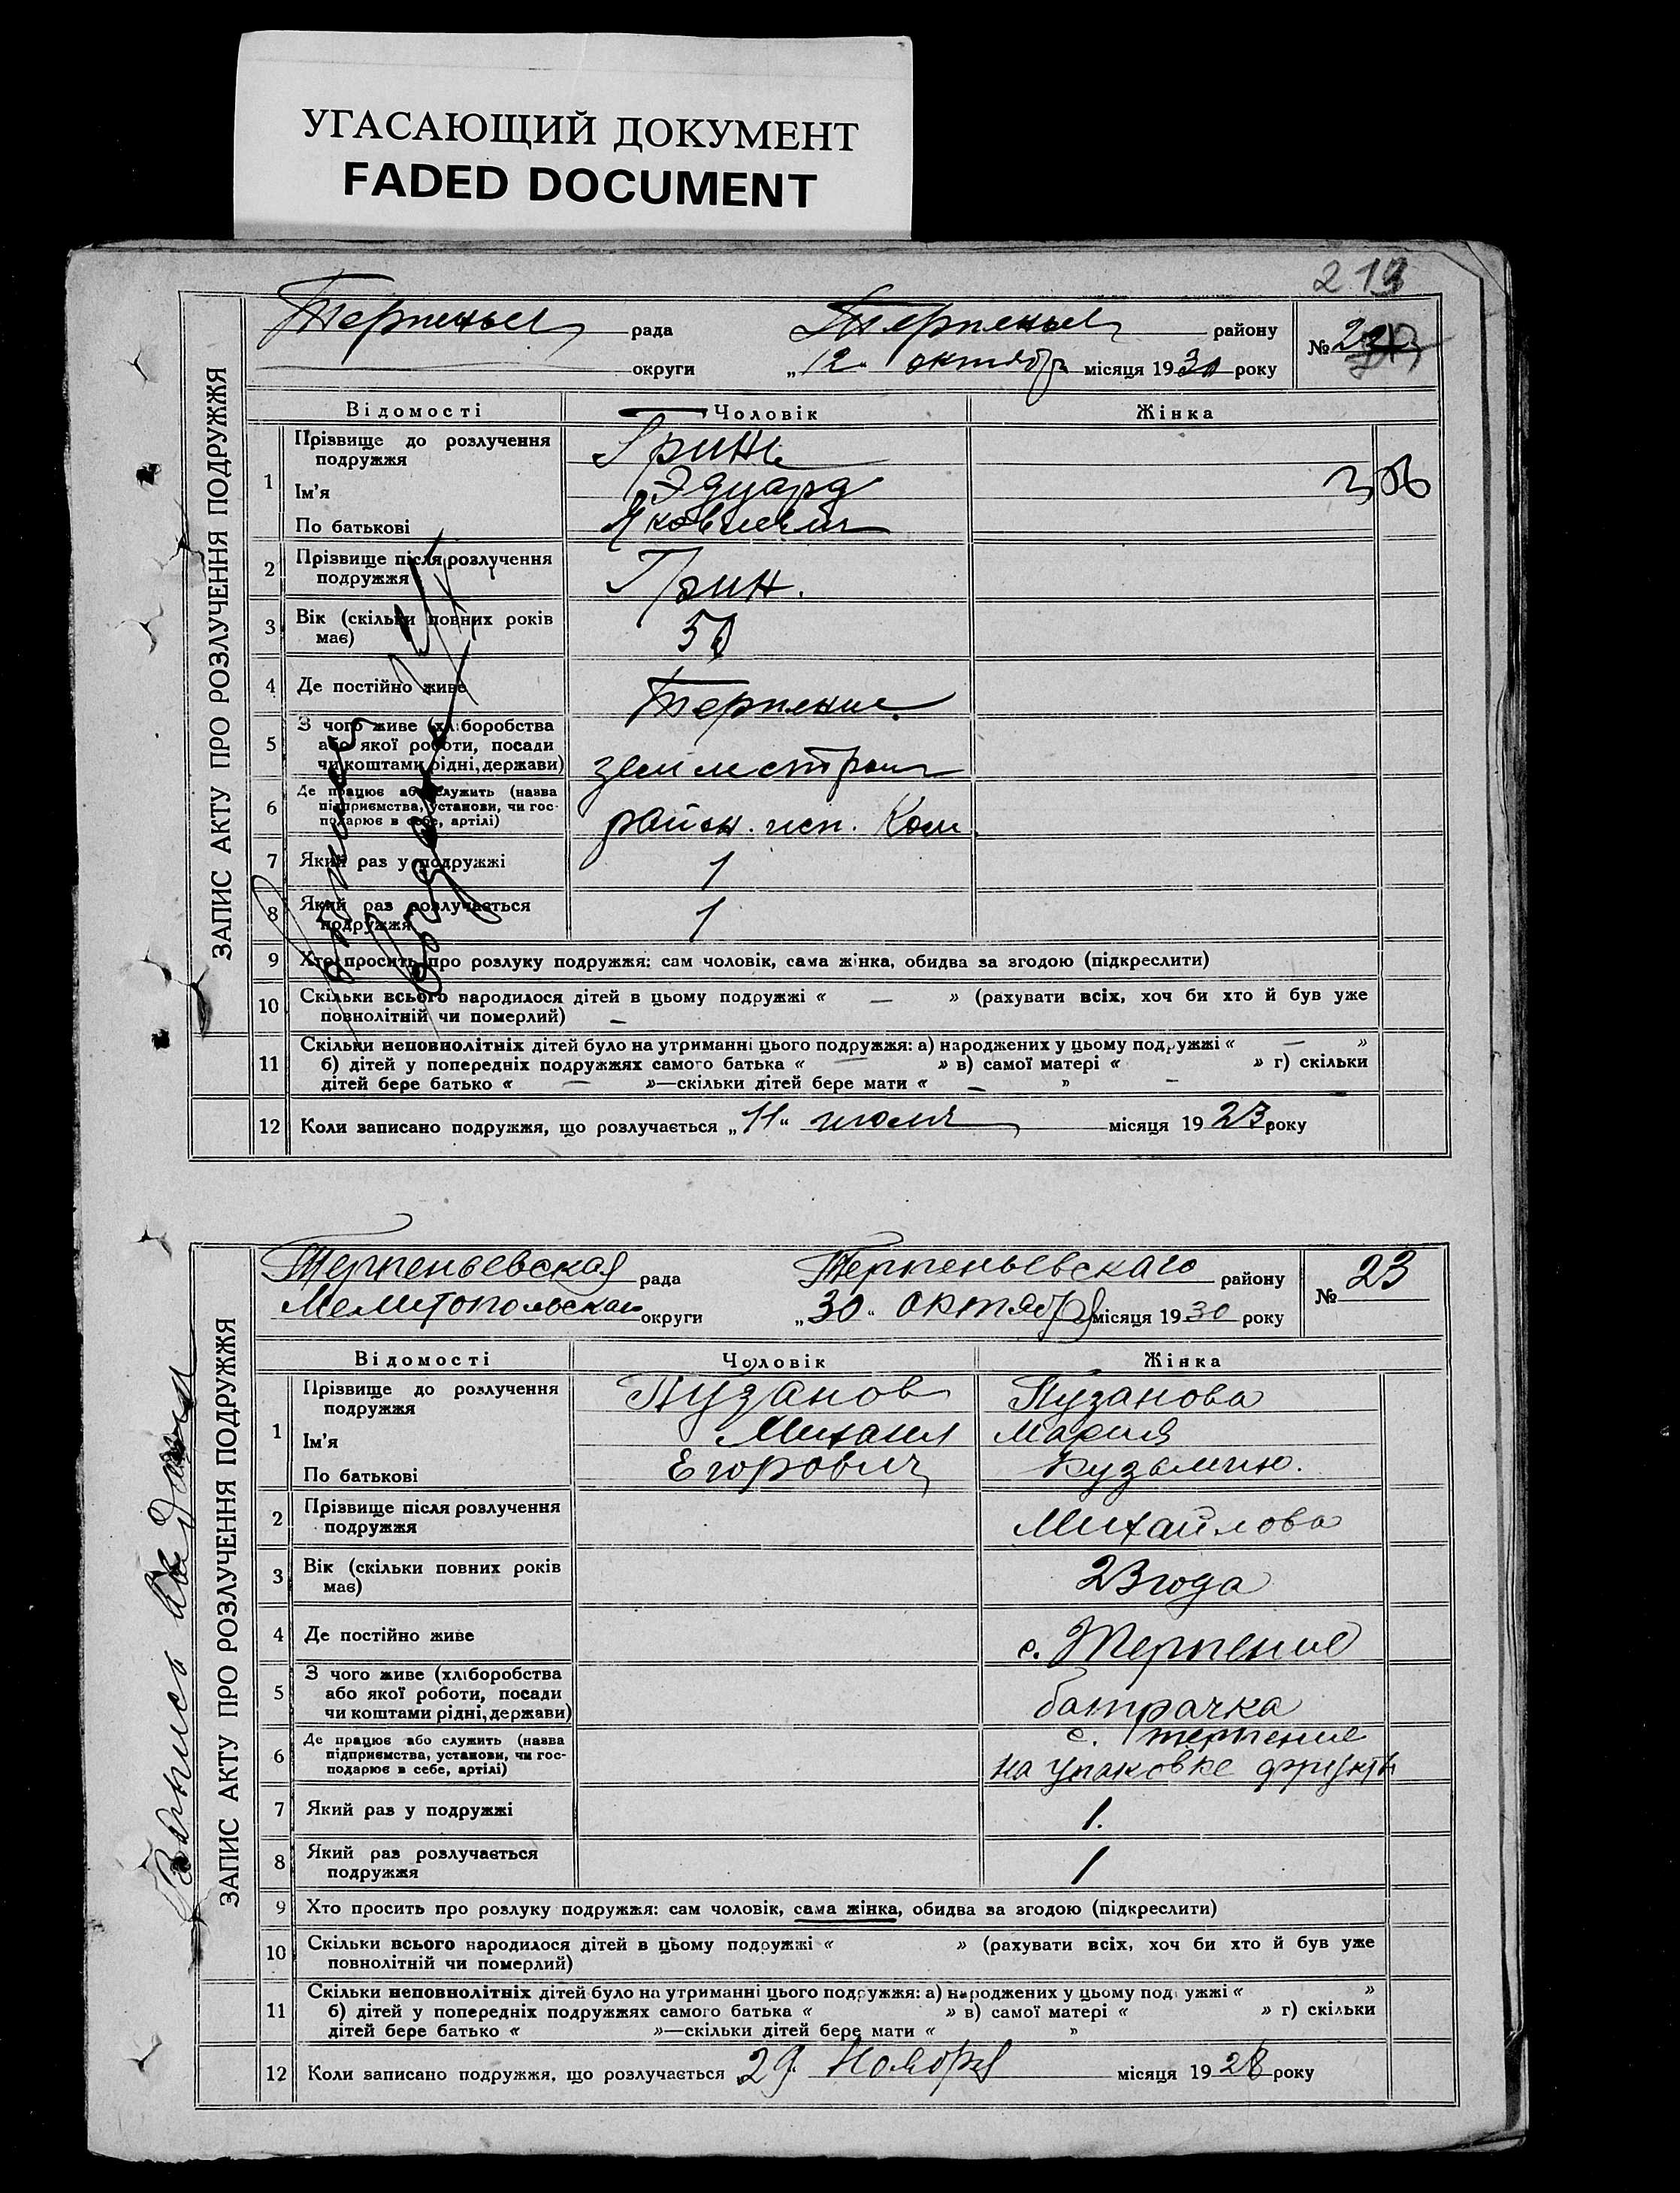 УГАСАЮЩИЙ ДОКУМЕНТ
FADED DOCUMENT
219
ЗАПИС АКТУ ПРО РОЗЛУЧЕННЯ ПОДРУЖЖЯ
рада району №
округи „12“ октября місяця 1930 року
Відомості Чоловік Жінка
1 Прізвище до розлучення подружжя Гринь
Ім'я Эдуард
По батькові Яковлевич
2 Прізвище після розлучення подружжя Грин.
3 Вік (скільки повних років має)
4 Де постійно живе Терпение.
5 З чого живе (хліборобства
або якої роботи, посади
чи коштами рідні, держави)
6 Де працює або служить (назва
підприємства, установи, чи гос-
подарює в себе, артілі) район. исп. Ком
7 Який раз у подружжі 1
8 Який раз розлучається подружжя 1
9 Хто просить про розлуку подружжя: сам чоловік, сама жінка, обидва за згодою (підкреслити)
10 Скільки всього народилося дітей в цьому подружжі « — » (рахувати всіх, хоч би хто й був уже
повнолітній чи померлий) —
11 Скільки неповнолітніх дітей було на утриманні цього подружжя: а) народжених у цьому подружжі « — »
б) дітей у попередніх подружжях самого батька « — » в) самої матері « — » г) скільки
дітей бере батько « — »—скільки дітей бере мати « — » —
12 Коли записано подружжя, що розлучається „11“ июля місяця 1923 року
ЗАПИС АКТУ ПРО РОЗЛУЧЕННЯ ПОДРУЖЖЯ
Терпеньевская рада Терпеньевскаго району № 23
Мелитопольскаго округи „30“ октября місяця 1930 року
Відомості Чоловік Жінка
1 Прізвище до розлучення подружжя Пузанов Пузанова
Ім'я Михаил Мария
По батькові Егорович Кузьмин.
2 Прізвище після розлучення подружжя Михайлова
3 Вік (скільки повних років має) 23 года
4 Де постійно живе с. Терпение
5 З чого живе (хліборобства
або якої роботи, посади
чи коштами рідні, держави) батрачка
6 Де працює або служить (назва
підприємства, установи, чи гос-
подарює в себе, артілі) с. терпение
на упаковке фрукты
7 Який раз у подружжі 1.
8 Який раз розлучається подружжя 1
9 Хто просить про розлуку подружжя: сам чоловік, сама жінка, обидва за згодою (підкреслити)
10 Скільки всього народилося дітей в цьому подружжі « » (рахувати всіх, хоч би хто й був уже
повнолітній чи померлий)
11 Скільки неповнолітніх дітей було на утриманні цього подружжя: а) народжених у цьому подружжі « »
б) дітей у попередніх подружжях самого батька « » в) самої матері « » г) скільки
дітей бере батько « »—скільки дітей бере мати « »
12 Коли записано подружжя, що розлучається 29. Ноября місяця 1928 року